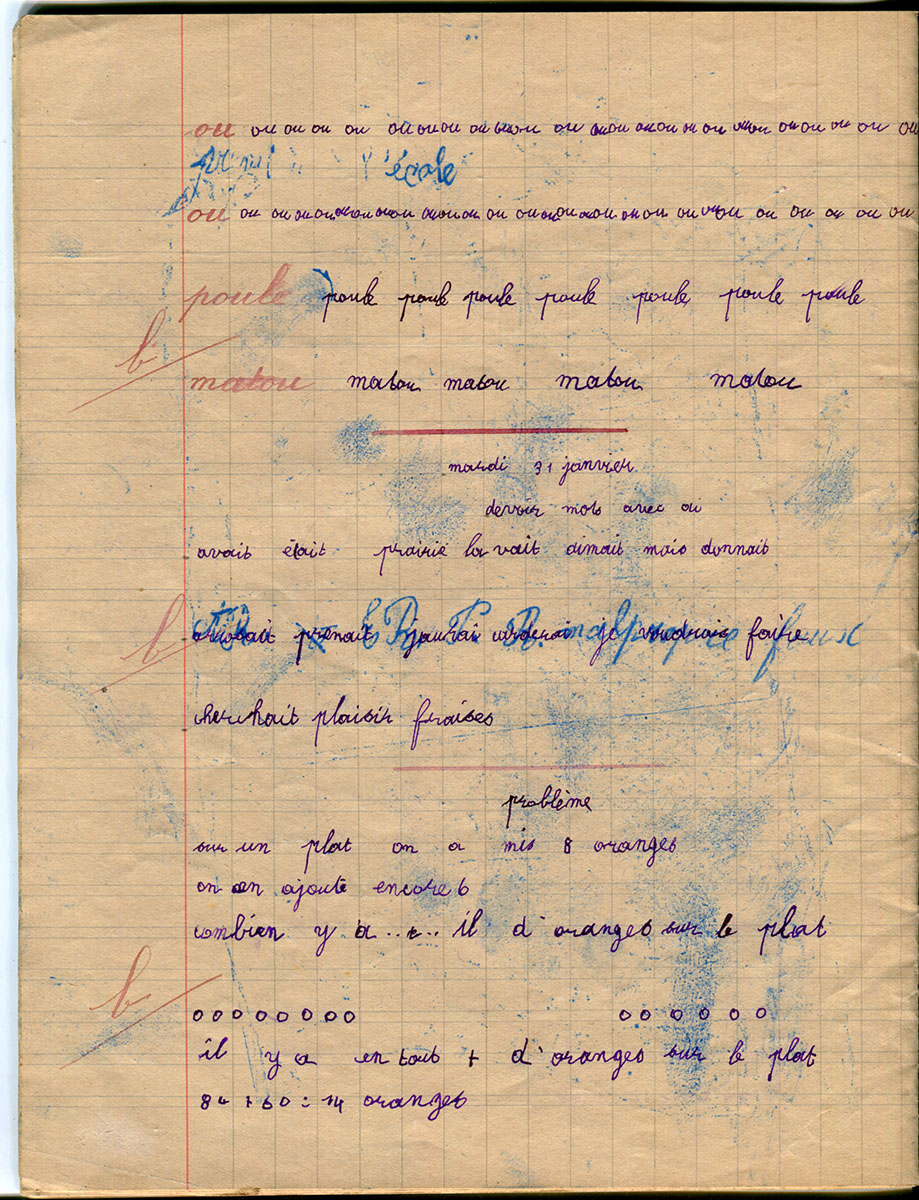 ou ou ou ou ou ou ou ou ou ou ou ou ou ou ou ou ou ou ou ou ou ou ou ou
l'école
ou ou ou ou ou ou ou ou ou ou ou ou ou ou ou ou ou ou ou ou ou ou ou ou ou
poule poule poule poule poule poule poule poule
b
matou matou matou matou matou
mardi 31 janvier
devoir mots avec ai
avait était prairie lavait dimait mais donnait
b
prenait j'aurai je voudrais faire
cherchait plaisir fraises
problème
sur un plat on a mis 8 oranges
on en ajoute encore 6
combien y a..t.. il d'oranges sur le plat
b
oooooooo oooooo
il y a en tout + d'oranges sur le plat
14 oranges